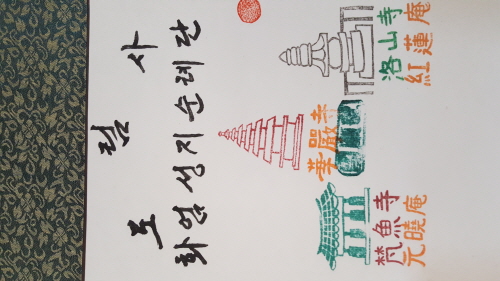 보림사
화엄성지순례단
梵魚寺
元曉庵
華嚴寺
洛山寺
紅蓮庵